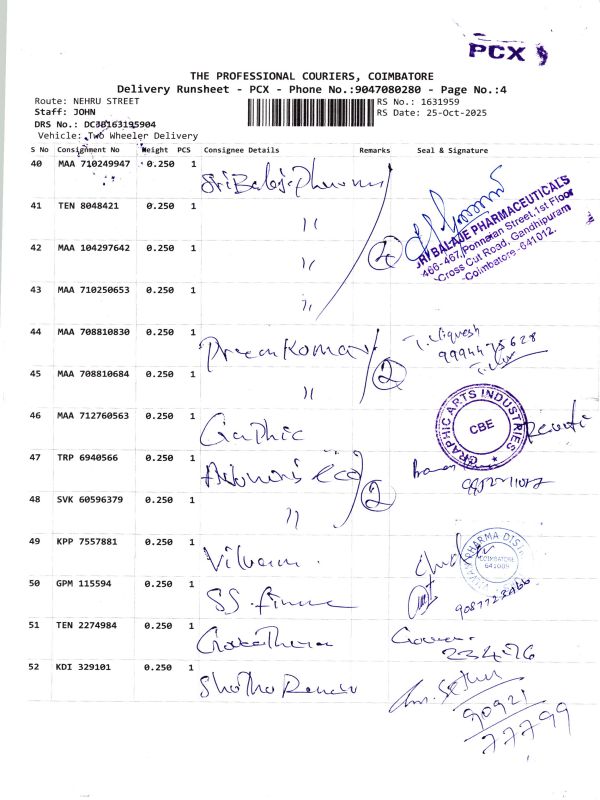 PCX
THE PROFESSIONAL COURIERS, COIMBATORE
Delivery Runsheet - PCX - Phone No.:9047080280 - Page No.:4
Route: NEHRU STREET
RS No.: 1631959
Staff: JOHN
RS Date: 25-Oct-2025
DRS No.: DC3B163195904
Vehicle: Two Wheeler Delivery
S No Consignment No Weight PCS Consignee Details Remarks Seal & Signature
40 MAA 710249947 0.250 1 Sri Balaji Pharma
SRI BALAJE PHARMACEUTICALS
466-467, Ponnaran Street, 1st Floor
Cross Cut Road, Gandhipuram
Coimbatore - 641012.
41 TEN 8048421 0.250 1 "
42 MAA 104297642 0.250 1 " 4
43 MAA 710250653 0.250 1 "
44 MAA 708810830 0.250 1 Prem Kumar T. Vignesh
9994475628
45 MAA 708810684 0.250 1 " 2
46 MAA 712760563 0.250 1 Graphic
GRAPHIC ARTS INDUSTRIES
CBE
47 TRP 6940566 0.250 1
48 SVK 60596379 0.250 1 " 2
49 KPP 7557881 0.250 1
PHARMA DIST
COIMBATORE
641009
50 GPM 115594 0.250 1 SS. finance
51 TEN 2274984 0.250 1
23426
52 KDI 329101 0.250 1
90921
77799